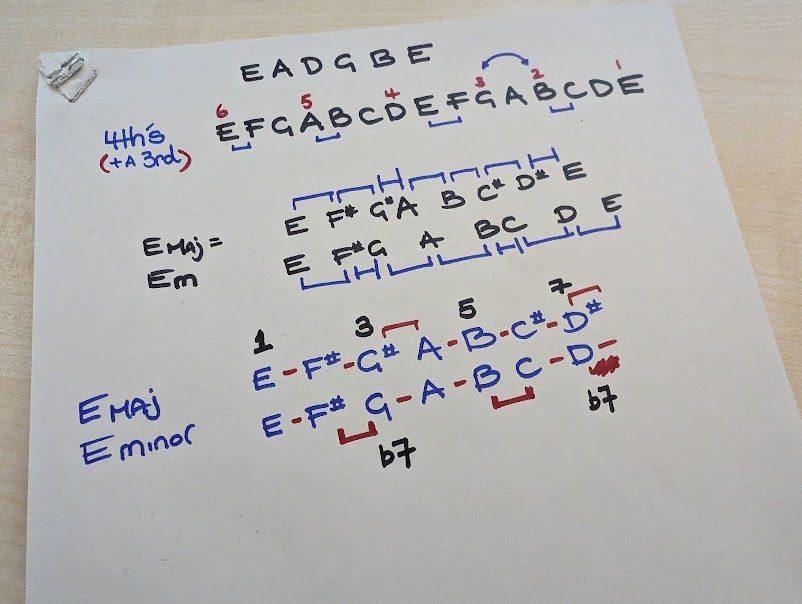 E A D G B E
6 5 4 3 2 1
4th's E F G A B C D E F G A B C D E
(+A 3rd)
E Maj = E F# G# A B C# D# E
Em E F# G A B C D E
1 3 5 7
E Maj E - F# - G# A - B - C# - D#
E minor E - F# G - A - B C - D -
b7 b7